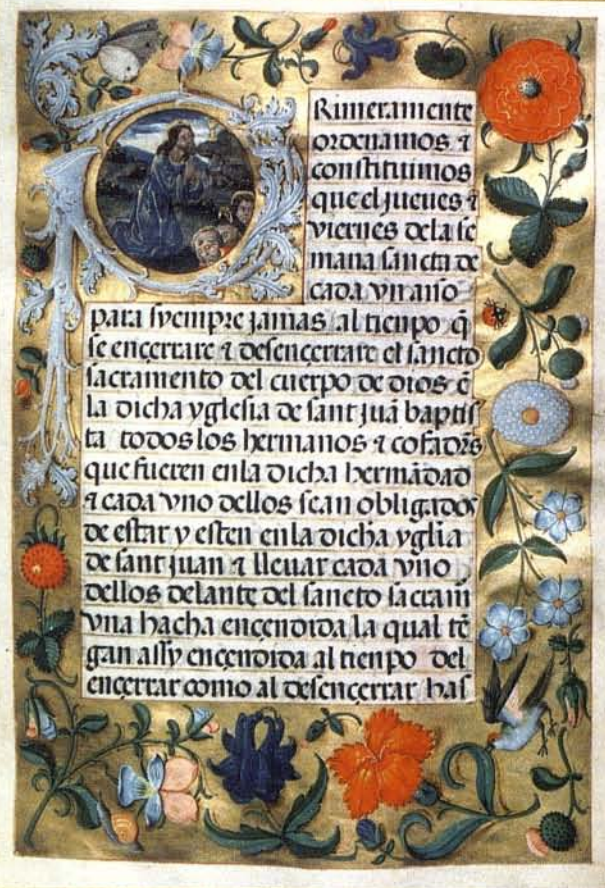 Rimeramente
ordenamos ⁊
constituimos
que el jueues ⁊
viernes dela se
mana sancta de
cada vn año
para syempre jamas al tienpo q̄
se ençerrare ⁊ desençerrare el sancto
sacramento del cuerpo de dios ē
la dicha yglesia de sant juā baptis
ta todos los hermanos ⁊ cofadrs̄
que fueren enla dicha hermādad
⁊ cada vno dellos sean obligados
de estar y esten enla dicha yglīa
de sant juan ⁊ lleuar cada vno
dellos delante del sancto sacram̄
vna hacha ençendida la qual tē
gan assy ençendida al tienpo del
ençerrar como al desençerrar has